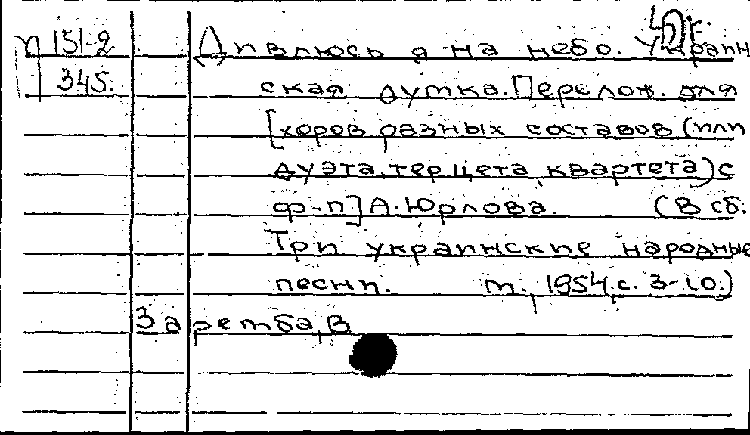 П 151-2
345.
Дивлюсь я на небо. Украин
ская думка. Перелож. для
[хоров разных составов (или
дуэта, терцета, квартета) с
ф-п] А. Юрлова. (В сб.:
Три украинские народные
песни. м., 1954, с. 3-10.)
Заремба, В